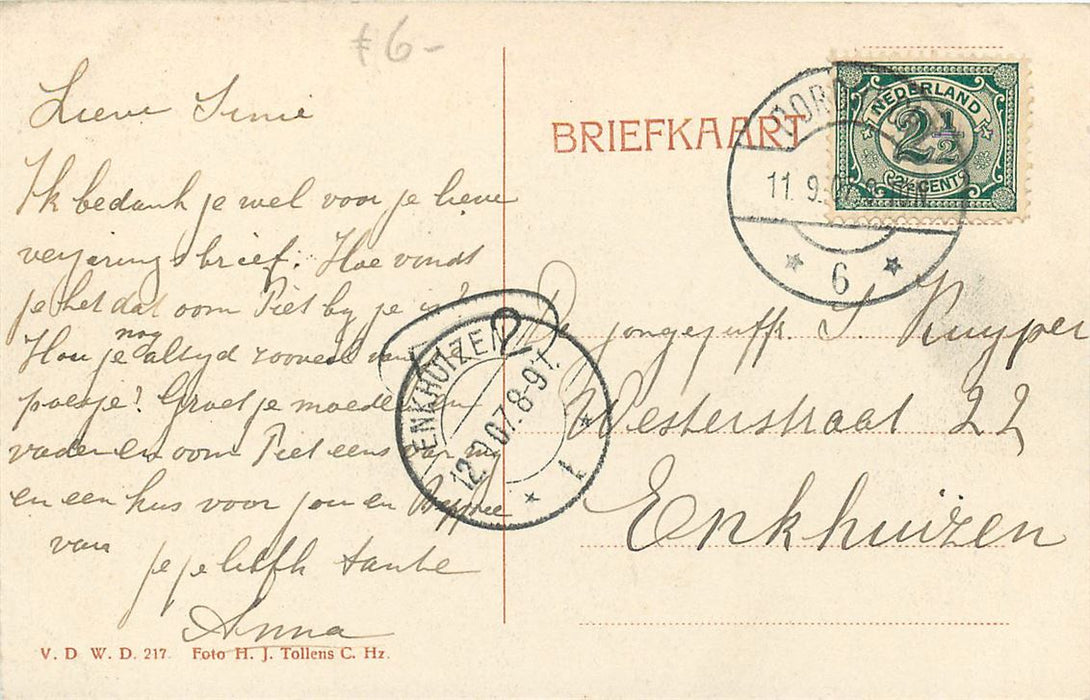 £6-
Lieve Sinie
Ik bedank je wel voor je lieve
verjaringsbrief. Hoe vindt
je het dat oom Piet by je is?
Hou je nog altyd zooveel van
poesje? Groet je moeder en
vader en oom Piet eens van my
en een kus voor jou en
van
je liefh tante
Anna
V. D W. D. 217. Foto H. J. Tollens C. Hz.
BRIEFKAART
NEDERLAND
2½
2½ CENT
DOR
11 9
6
ENKHUIZEN
12.9.07.8-9V.
1
De jongejuffr. S. Kuyper
Westerstraat 22
Enkhuizen